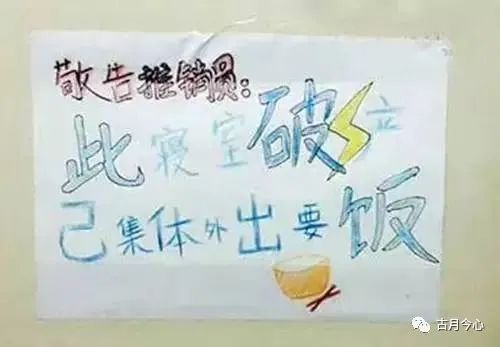 敬告推销员:
此寝室破产
己集体外出要饭
古月今心